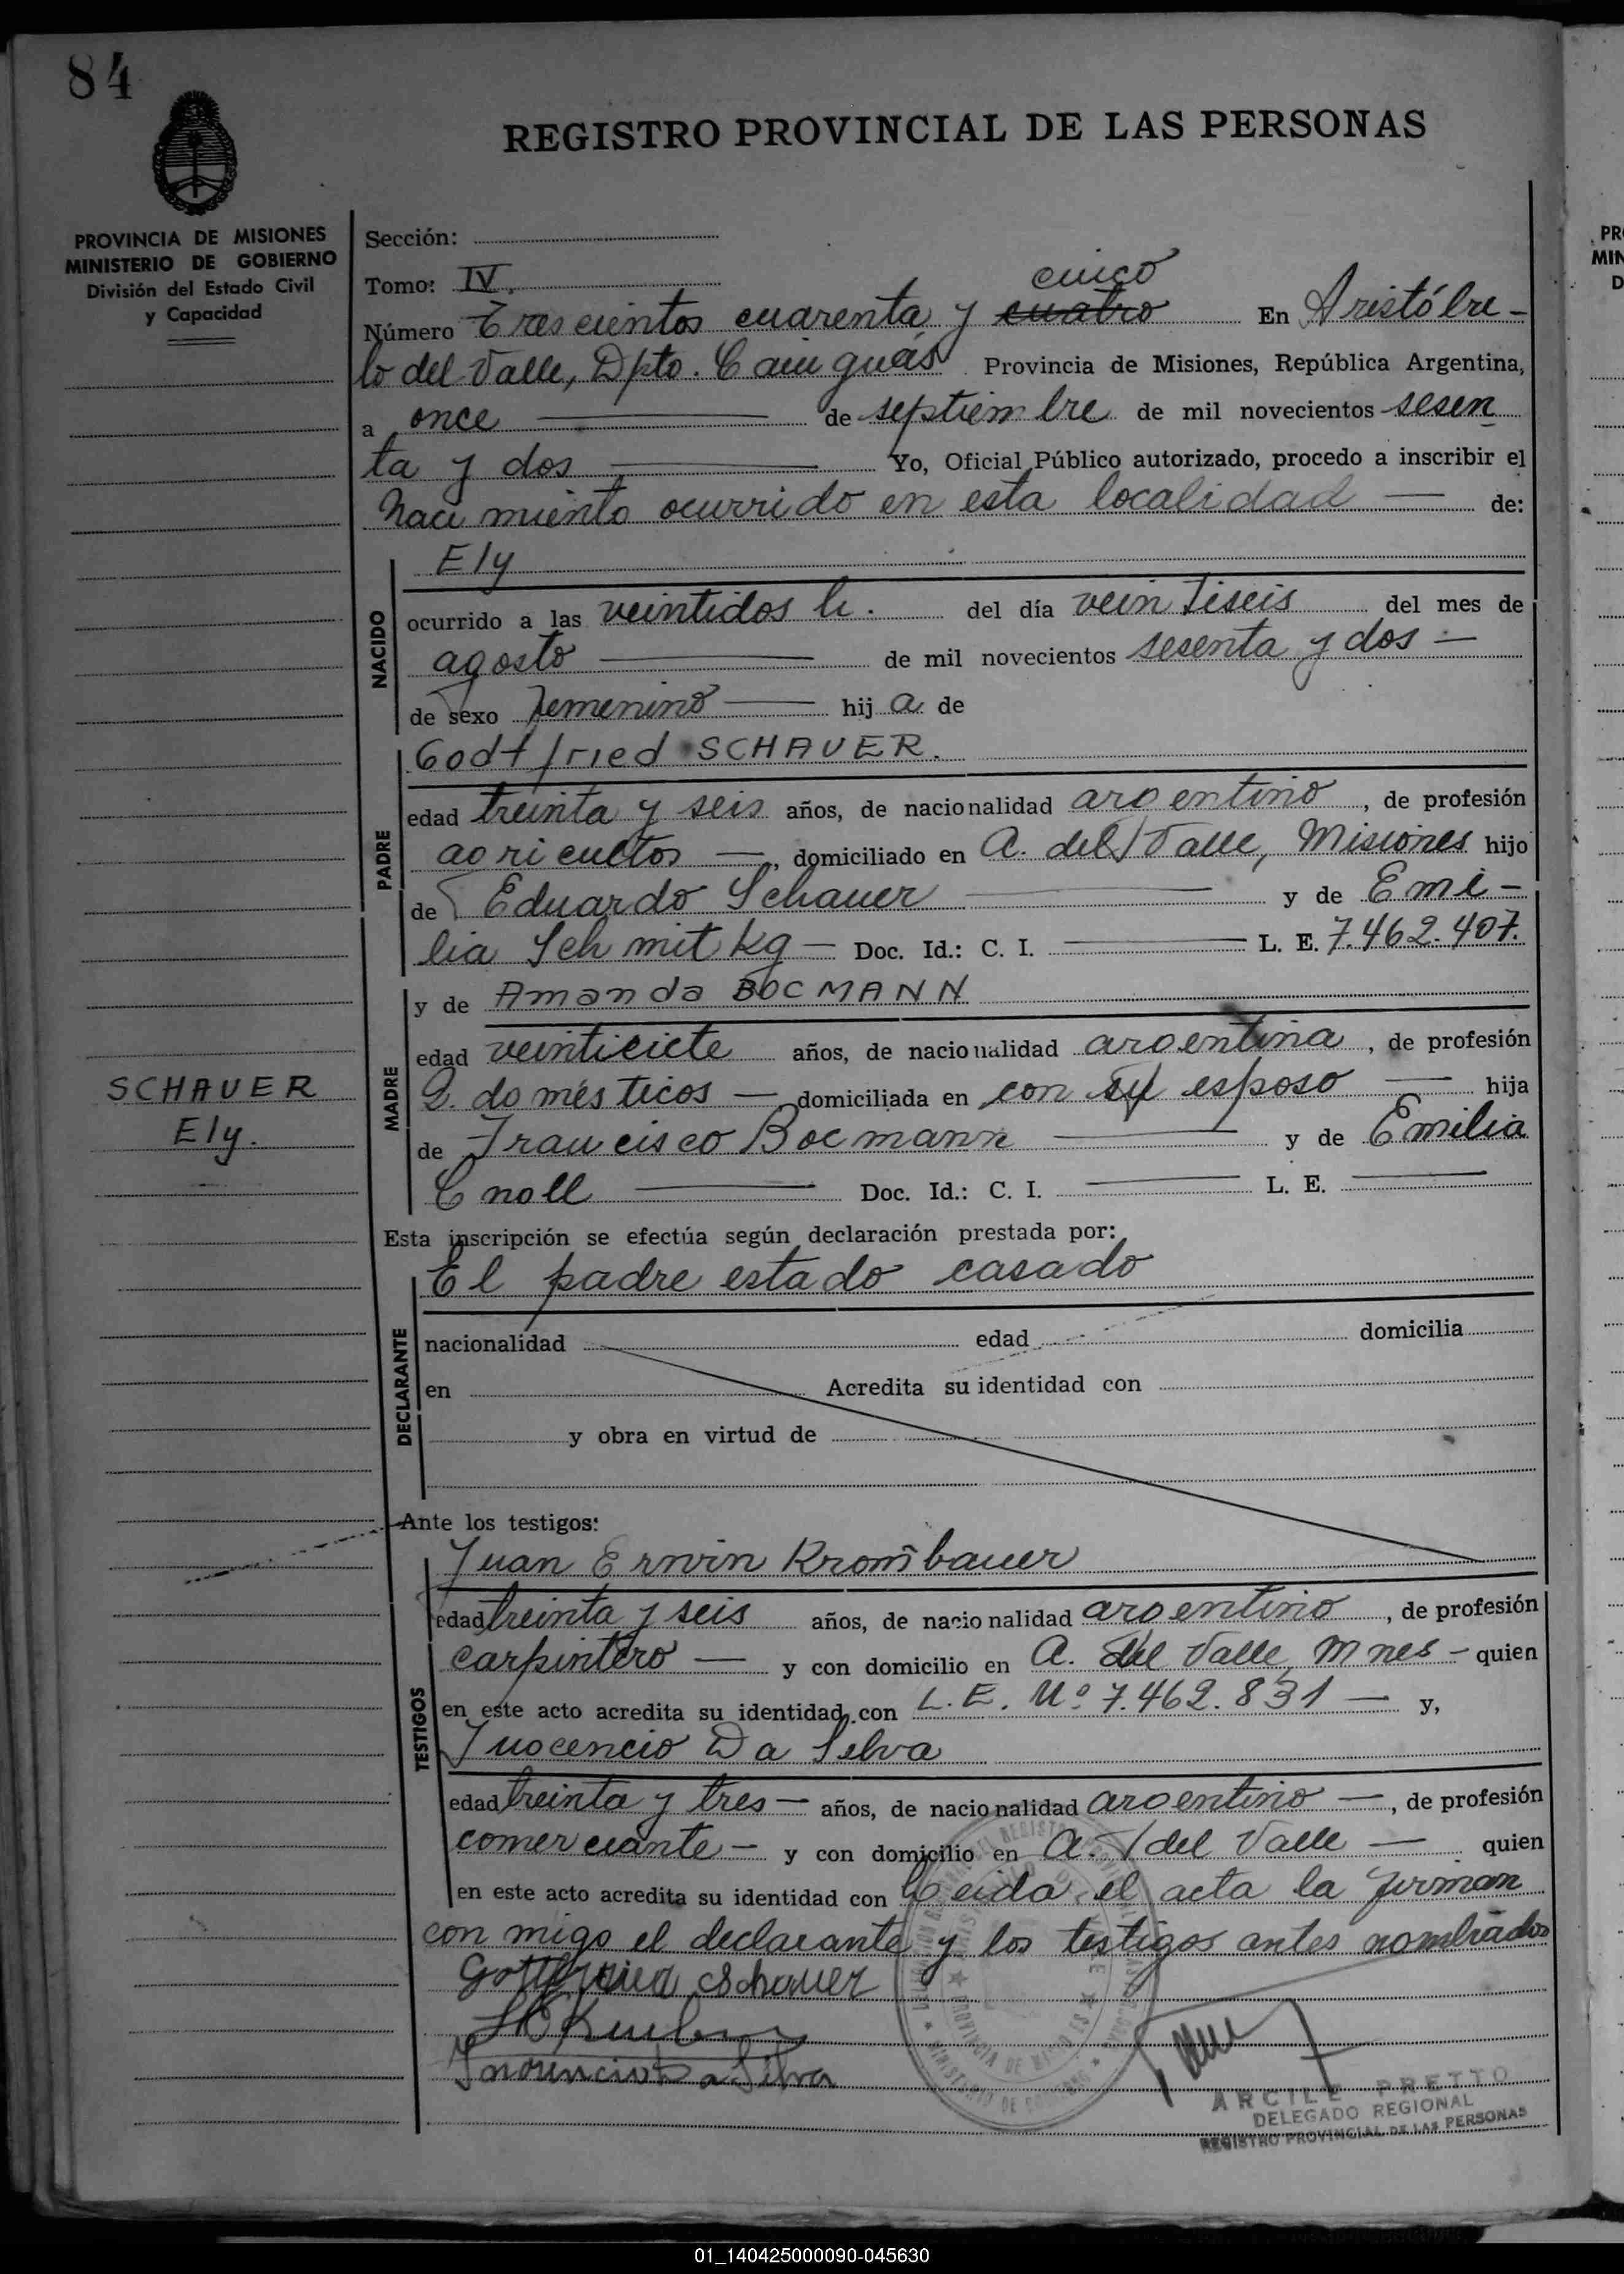 84
REGISTRO PROVINCIAL DE LAS PERSONAS
PROVINCIA DE MISIONES
MINISTERIO DE GOBIERNO
División del Estado Civil
y Capacidad
Sección:
Tomo: IV.
cinco
Número Trescientos cuarenta y cuatro En Aristóbu-
lo del Valle, Dpto. Cainguás Provincia de Misiones, República Argentina,
a once de septiembre de mil novecientos sesen
ta y dos Yo, Oficial Público autorizado, procedo a inscribir el
Nacimiento ocurrido en esta localidad — de:
Ely
NACIDO
ocurrido a las veintidos h. del día veintiseis del mes de
agosto de mil novecientos sesenta y dos —
de sexo femenino hij a de
Godtfried SCHAUER.
PADRE
edad treinta y seis años, de nacionalidad argentino, de profesión
agricultor —, domiciliado en A. del Valle, Misiones hijo
de Eduardo Schauer y de Emi-
lia Schmitkg — Doc. Id.: C. I. L. E. 7.462.407.
y de Amanda BOCMANN
MADRE
edad veinticicte años, de nacionalidad argentina, de profesión
Q. domésticos — domiciliada en con su esposo — hija
de Francisco Bocmann y de Emilia
Cnoll Doc. Id.: C. I. L. E.
SCHAUER
Ely.
Esta inscripción se efectúa según declaración prestada por:
El padre estado casado
DECLARANTE
nacionalidad edad domicilia
en Acredita su identidad con
y obra en virtud de
Ante los testigos:
Juan Erwin Krombauer
TESTIGOS
edad treinta y seis años, de nacionalidad argentino, de profesión
carpintero — y con domicilio en A. del Valle, Mnes - quien
en este acto acredita su identidad con L.E. Nº 7.462.831 — y,
Inocencio Da Selva
edad treinta y tres — años, de nacionalidad argentino —, de profesión
comerciante — y con domicilio en A. del Valle — quien
en este acto acredita su identidad con Leida el acta la firman
con migo el declarante y los testigos antes nombrados
Gottfried Schauer
Inocencio Da Silva
ARCILE PRETTO
DELEGADO REGIONAL
REGISTRO PROVINCIAL DE LAS PERSONAS
01_140425000090-045630